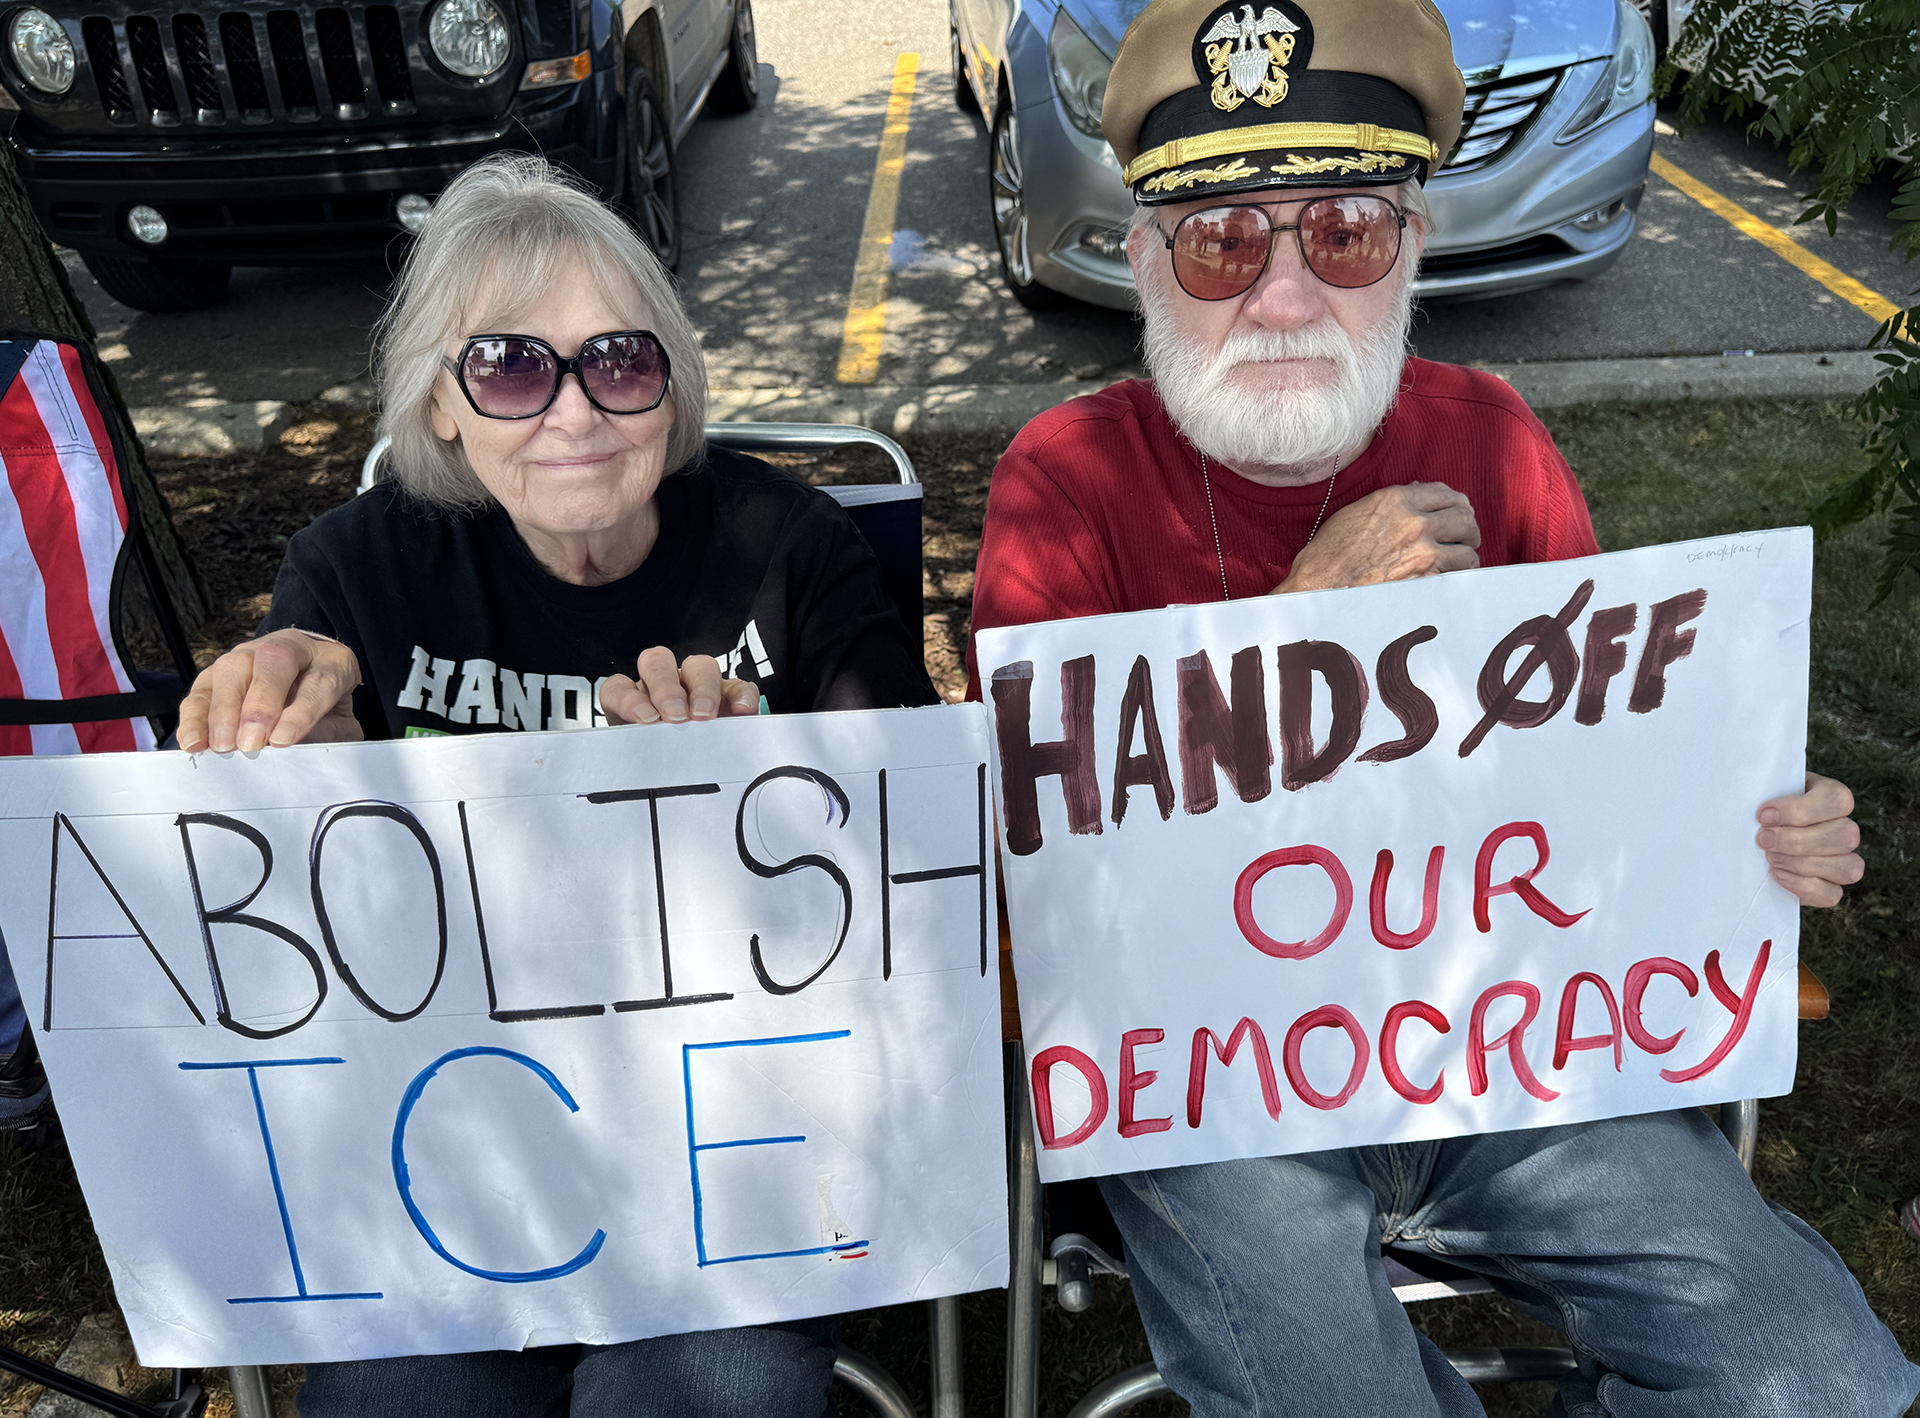 HANDS
ABOLISH
ICE
Democracy
HANDS OFF
OUR
DEMOCRACY